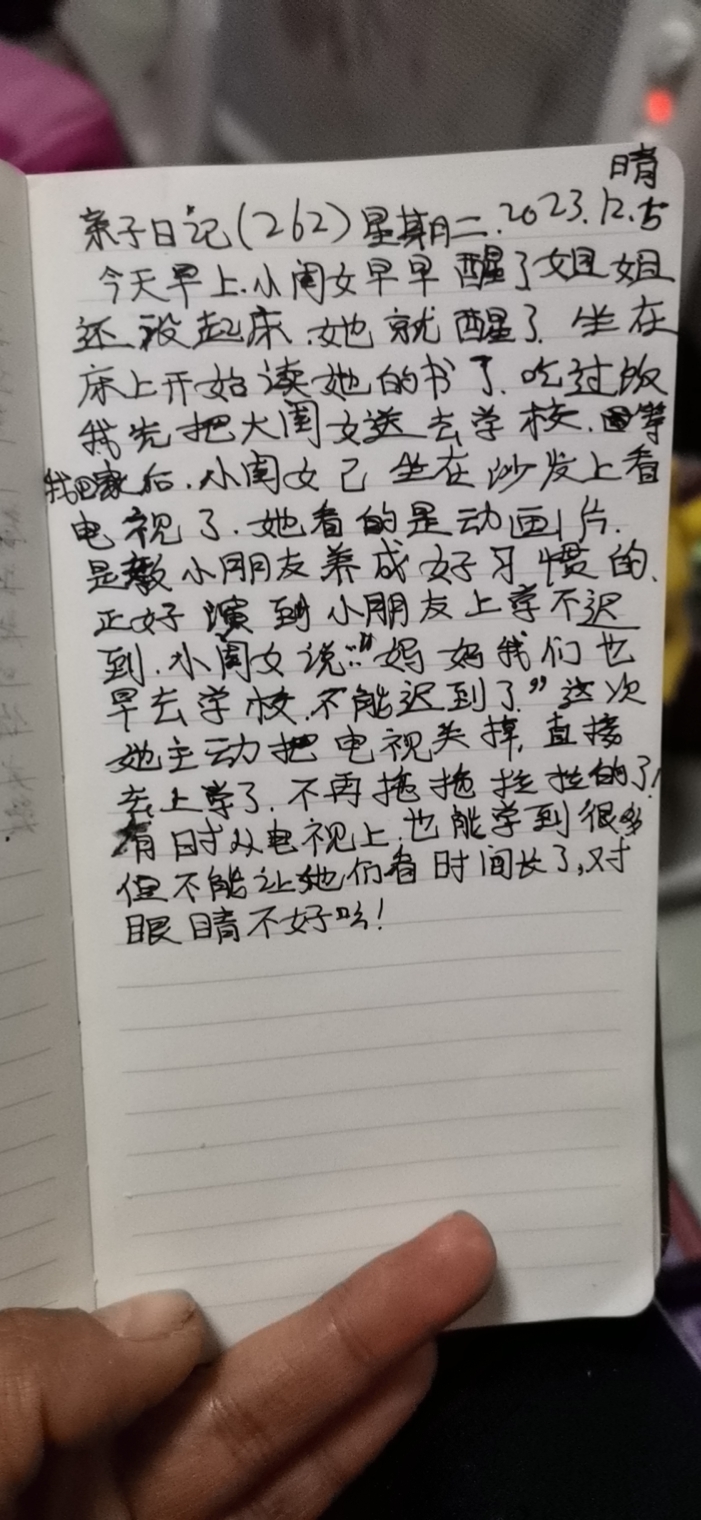 晴
亲子日记(262)星期二.2023.12.5
今天早上.小闺女早早醒了姐姐
还没起床.她就醒了.坐在
床上开始读她的书了.吃过饭
我先把大闺女送去学校.等
我回家后.小闺女己坐在沙发上看
电视了.她看的是动画片.
是教小朋友养成好习惯的.
正好演到小朋友上学不迟
到.小闺女说:"妈妈我们也
早去学校.不能迟到了"这次
她主动把电视关掉,直接
去上学了.不再拖拖拉拉的了!
有时从电视上.也能学到很多
但不能让她们看时间长了,对
眼睛不好哈!